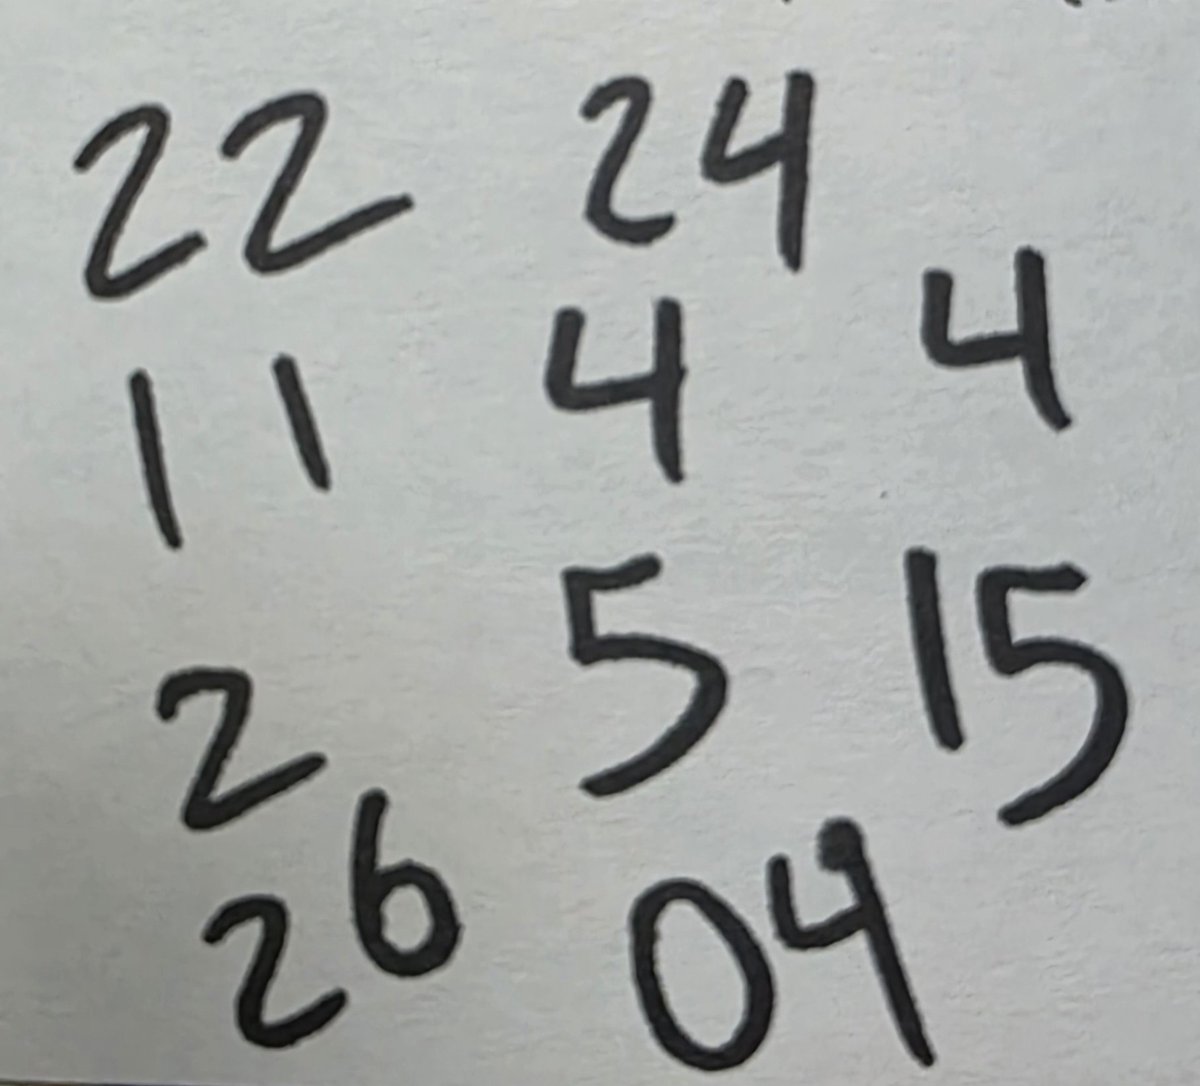 22 24
11 4 4
2 5 15
26 04